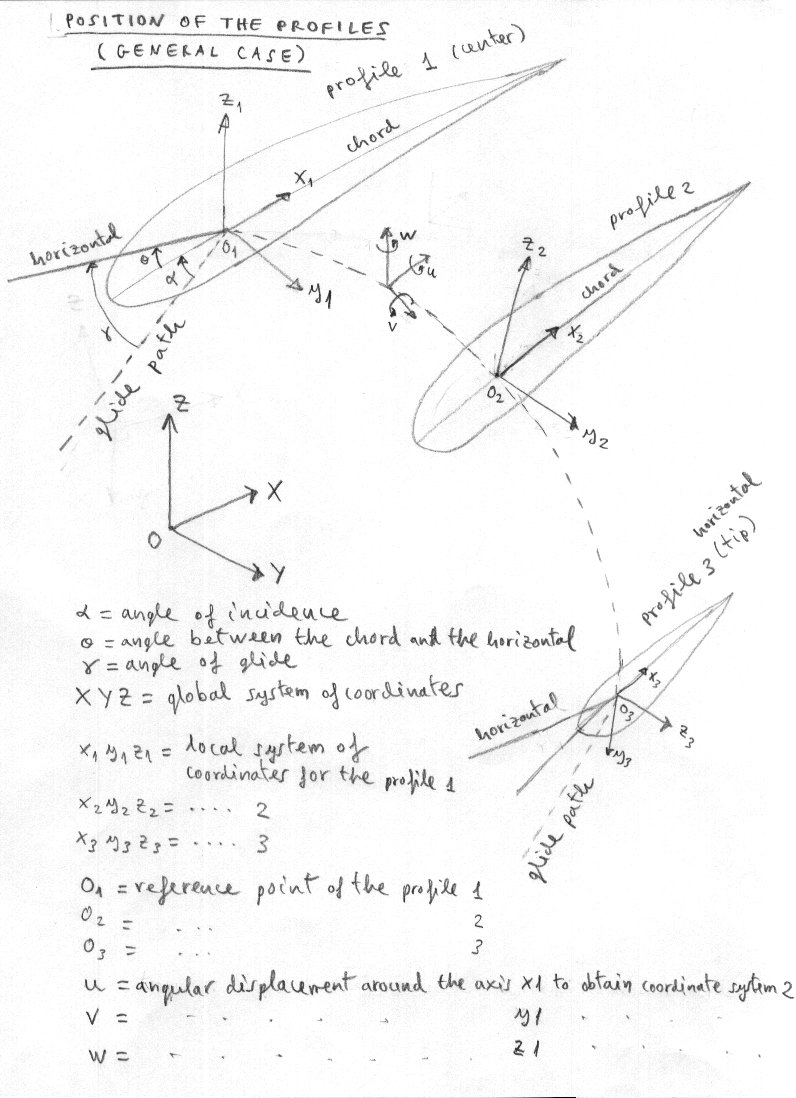 POSITION OF THE PROFILES
(GENERAL CASE)
profile 1 (center)
z1
chord
x1
horizontal
θ
α
O1
y1
γ
glide path
w
u
v
profile 2
z2
chord
x2
O2
y2
Z
X
O
Y
horizontal
profile 3 (tip)
x3
O3
z3
y3
horizontal
glide path
α = angle of incidence
θ = angle between the chord and the horizontal
γ = angle of glide
X Y Z = global system of coordinates
x1 y1 z1 = local system of
coordinates for the profile 1
x2 y2 z2 = .... 2
x3 y3 z3 = .... 3
O1 = reference point of the profile 1
O2 = ... 2
O3 = ... 3
u = angular displacement around the axis x1 to obtain coordinate system 2
v = . . . . . y1 . . . .
w = . . . . . . z1 . . . . . .